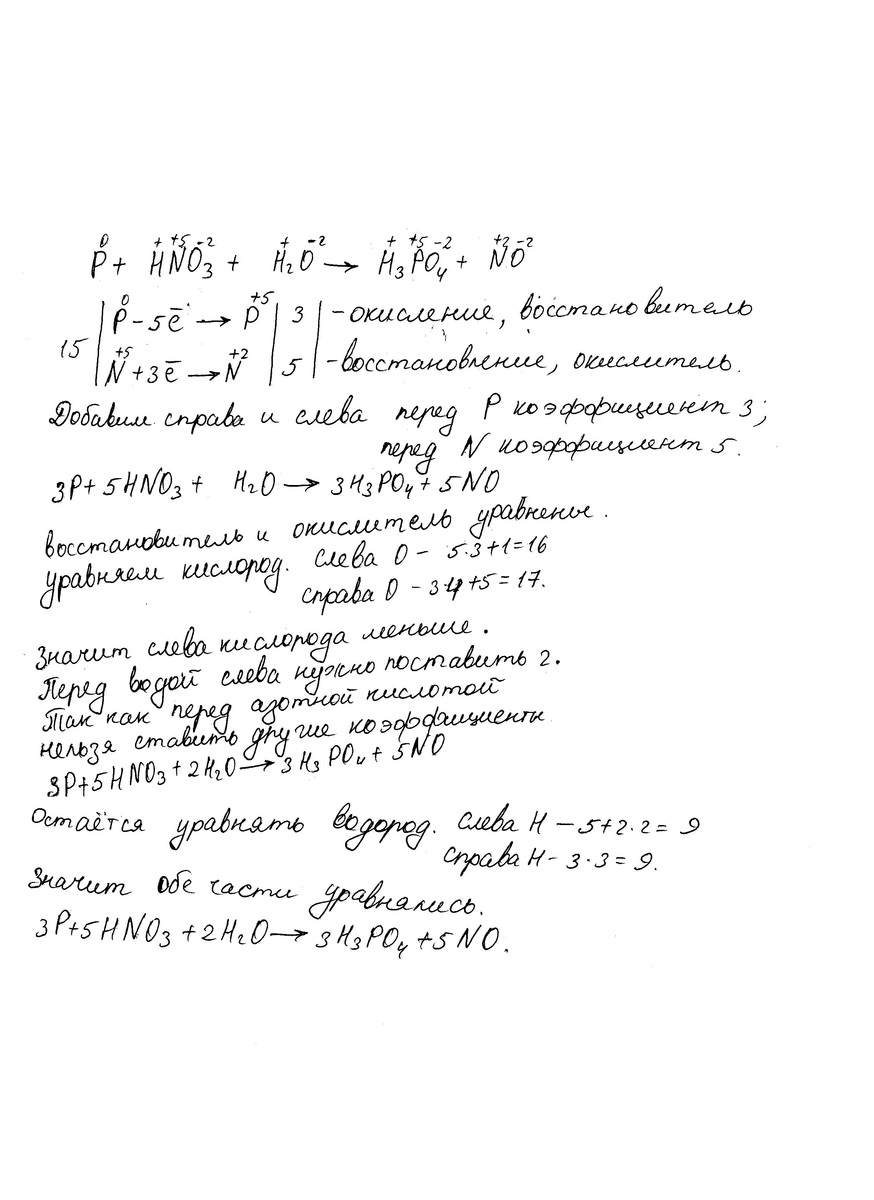 0 + +5 -2 + -2 + +5 -2 +2 -2
P + HNO₃ + H₂O → H₃PO₄ + NO
0 +5
P - 5ē → P | 3 | - окисление, восстановитель
15
+5 +2
N + 3ē → N | 5 | - восстановление, окислитель.
Добавим справа и слева перед P коэффициент 3;
перед N коэффициент 5.
3P + 5HNO₃ + H₂O → 3H₃PO₄ + 5NO
восстановитель и окислитель уравнены.
уравняем кислород. слева O - 5·3+1=16
справа O - 3·4+5=17.
Значит слева кислорода меньше.
Перед водой слева нужно поставить 2.
Так как перед азотной кислотой
нельзя ставить другие коэффициенты
3P+5HNO₃+2H₂O → 3H₃PO₄+5NO
Остаётся уравнять водород. слева H - 5+2·2=9
справа H - 3·3=9.
Значит обе части уравнялись.
3P+5HNO₃+2H₂O → 3H₃PO₄+5NO.